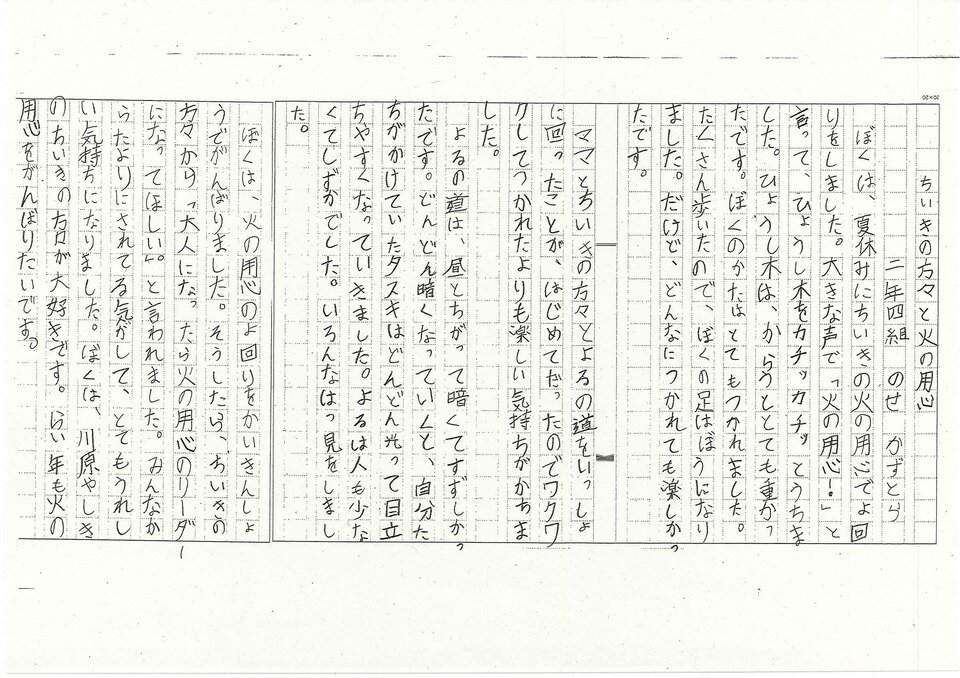 ちいきの方々と火の用心
二年四組　のせ　かずとら
ぼくは、夏休みにちいきの火の用心でよ回
りをしました。大きな声で「火の用心！」と
言って、ひょうし木をカチッカチッとうちま
した。ひょうし木は、からうとても重かっ
たです。ぼくのかたはとてもつかれました。
たくさん歩いたので、ぼくの足はぼうになり
ました。だけど、どんなにつかれても楽しかっ
たです。
ママとちいきの方々とよるの道をいっしょ
に回ったことが、はじめてだったのでワクワ
クしてつかれたよりも楽しい気持ちがかちま
した。
よるの道は、昼とちがって暗くてすずしかっ
たです。どんどん暗くなっていくと、自分た
ちがかけていたタスキはどんどん光って目立
ちやすくなっていきました。よるは人も少な
くてしずかでした。いろんなはっ見をしまし
た。
ぼくは、火の用心のよ回りをかいきんしょ
うでがんばりました。そうしたら、ちいきの
方々から「大人になったら火の用心のリーダー
になってほしい。」と言われました。みんなか
らたよりにされてる気がして、とてもうれし
い気持ちになりました。ぼくは、川原やしき
のちいきの方々が大好きです。らい年も火の
用心をがんばりたいです。
20×20